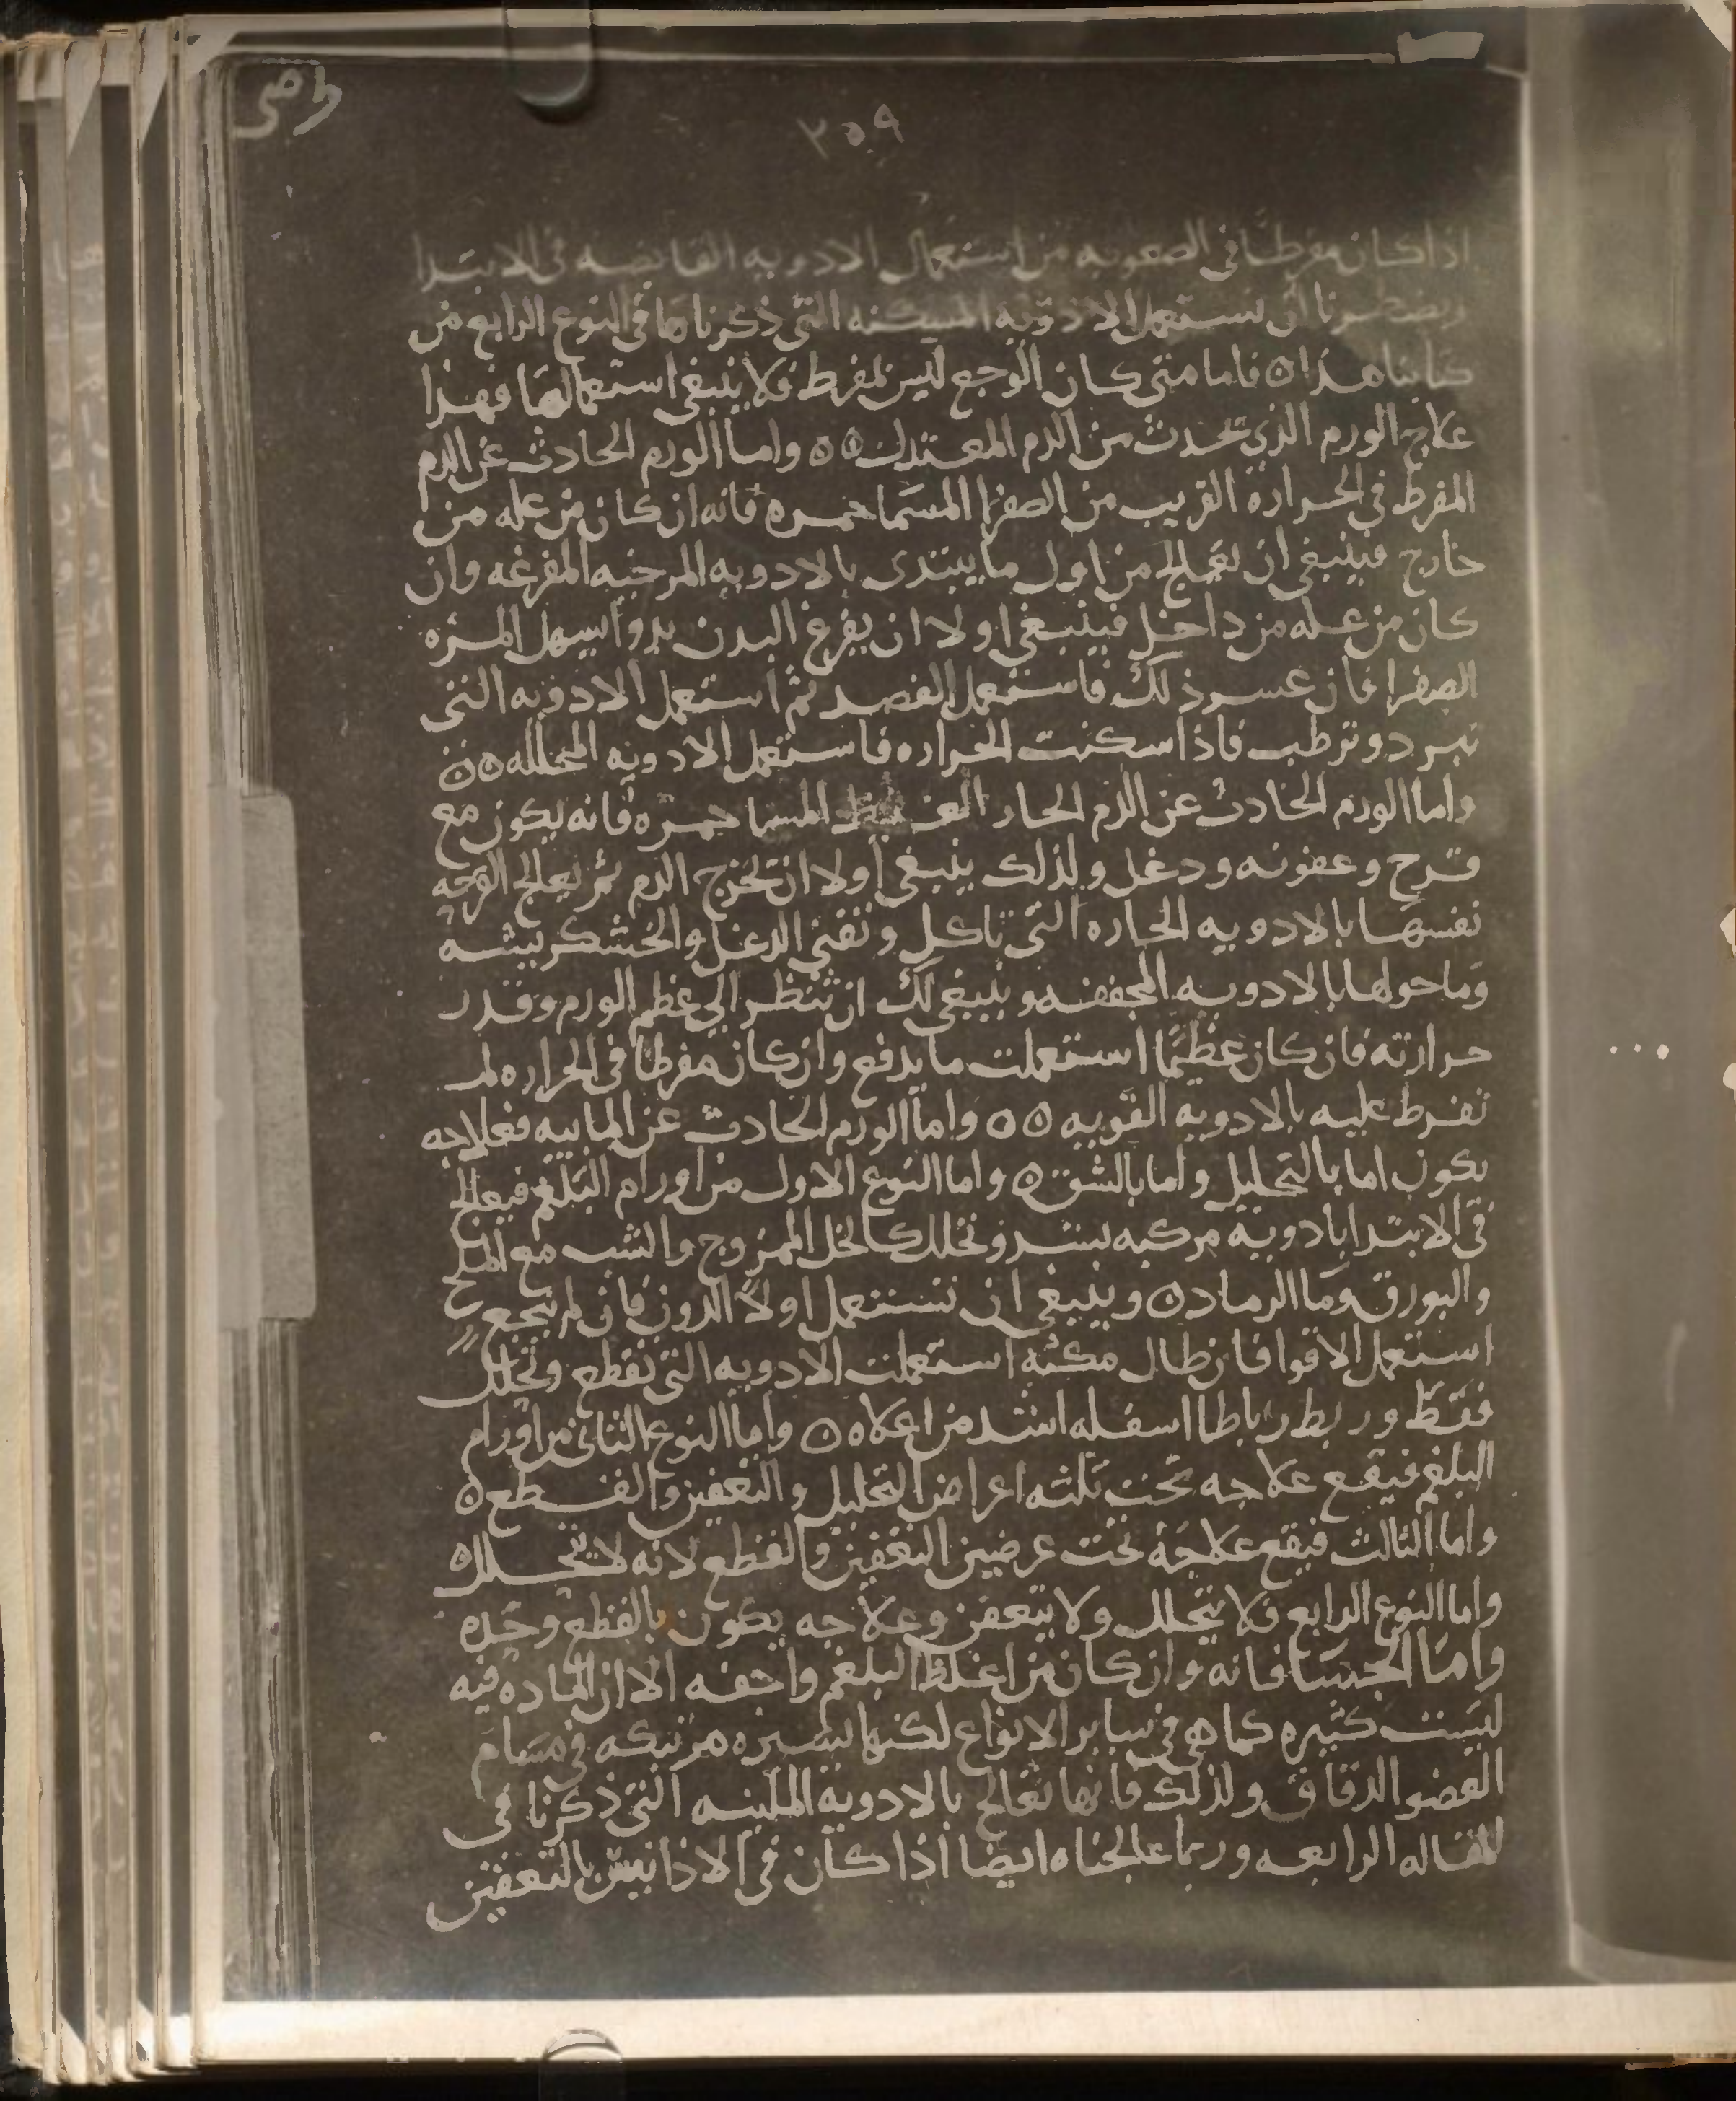 ٢٥٩
اذا كان مفرطا في الصعوبه من استعمال الادويه القابضه في الابتدا
ويضطرنا الى نستعمل الادويه المسكنه التي ذكرناها في النوع الرابع من
كتابنا هذا ٥ فاما متى كان الوجع ليس بمفرط فلا ينبغي استعمالها فهذا
علاج الورم الذي تحدث من الدم المعتدل ٥٥ واما الورم الحادث عن الدم
المفرط في الحراره القريب من الصفرا المسما حمره فانه ان كان من عله من
خارج فينبغي ان تعالج من اول ما يبتدى بالادويه المرخيه المفرغه وان
كان من عله من داخل فينبغي اولا ان يفرغ البدن بدوا يسهل المره
الصفرا فان عسر ذلك فاستعمل الفصد ثم استعمل الادويه التي
تبرد وترطب فاذا سكنت الحراره فاستعمل الادويه المحلله ٥٥
واما الورم الحادث عن الدم الحار المسما حمره فانه يكون مع
قرح وعفونه ودغل ولذلك ينبغي اولا ان تخرج الدم ثم يعالج القرحه
نفسها بالادويه الحاره التي تاكل وتفني الدغل والخشكريشه
وما حولها بالادويه المجففه وينبغي لك ان تنظر الى عظم الورم وقدر
حرارته فان كان عظيما استعملت ما يدفع وان كان مفرطا في الحراره لم
تفرط عليه بالادويه القويه ٥٥ واما الورم الحادث عن المابيه فعلاجه
يكون اما بالتحليل واما بالشق ٥ واما النوع الاول من اورام البلغم فيعالج
في الابتدا بادويه مركبه تشد وتحلل كالخل الممزوج والشب مع الملح
والبورق وما الرماد ٥ وينبغي ان تستعمل اولا الدون فان لم ينجع
استعمل الاقوا فان طال مكثه استعملت الادويه التي تقطع وتحلل
فقط وربط رباطا اسفله اشد من اعلاه ٥ واما النوع الثاني من اورام
البلغم فيقع علاجه تحت ثلثه اعراض التحليل والتعفين والقطع ٥
واما الثالث فيقع علاجه تحت عرضين التعفين والقطع لانه لا يتحلل ٥
واما النوع الرابع فلا يتحلل ولا يتعفن وعلاجه يكون بالقطع وحده
واما الجسا فانه وان كان من اغلظ البلغم واجفه الا ان الماده فيه
ليست كثيره كما هي في ساير الانواع لكنها يسيره مرتبكه في مسام
العضو الدقاق ولذلك فانها تعالج بالادوية الملينه التي ذكرنا في
المقاله الرابعه وربما عالجناه ايضا اذا كان في بالتعفين